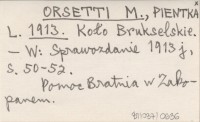 ORSETTI M., PIENTKA
L. 1913. Koło Brukselskie.
– W: Sprawozdanie 1913 r.,
s. 50-52.
Pomoc Bratnia w Zako-
panem.